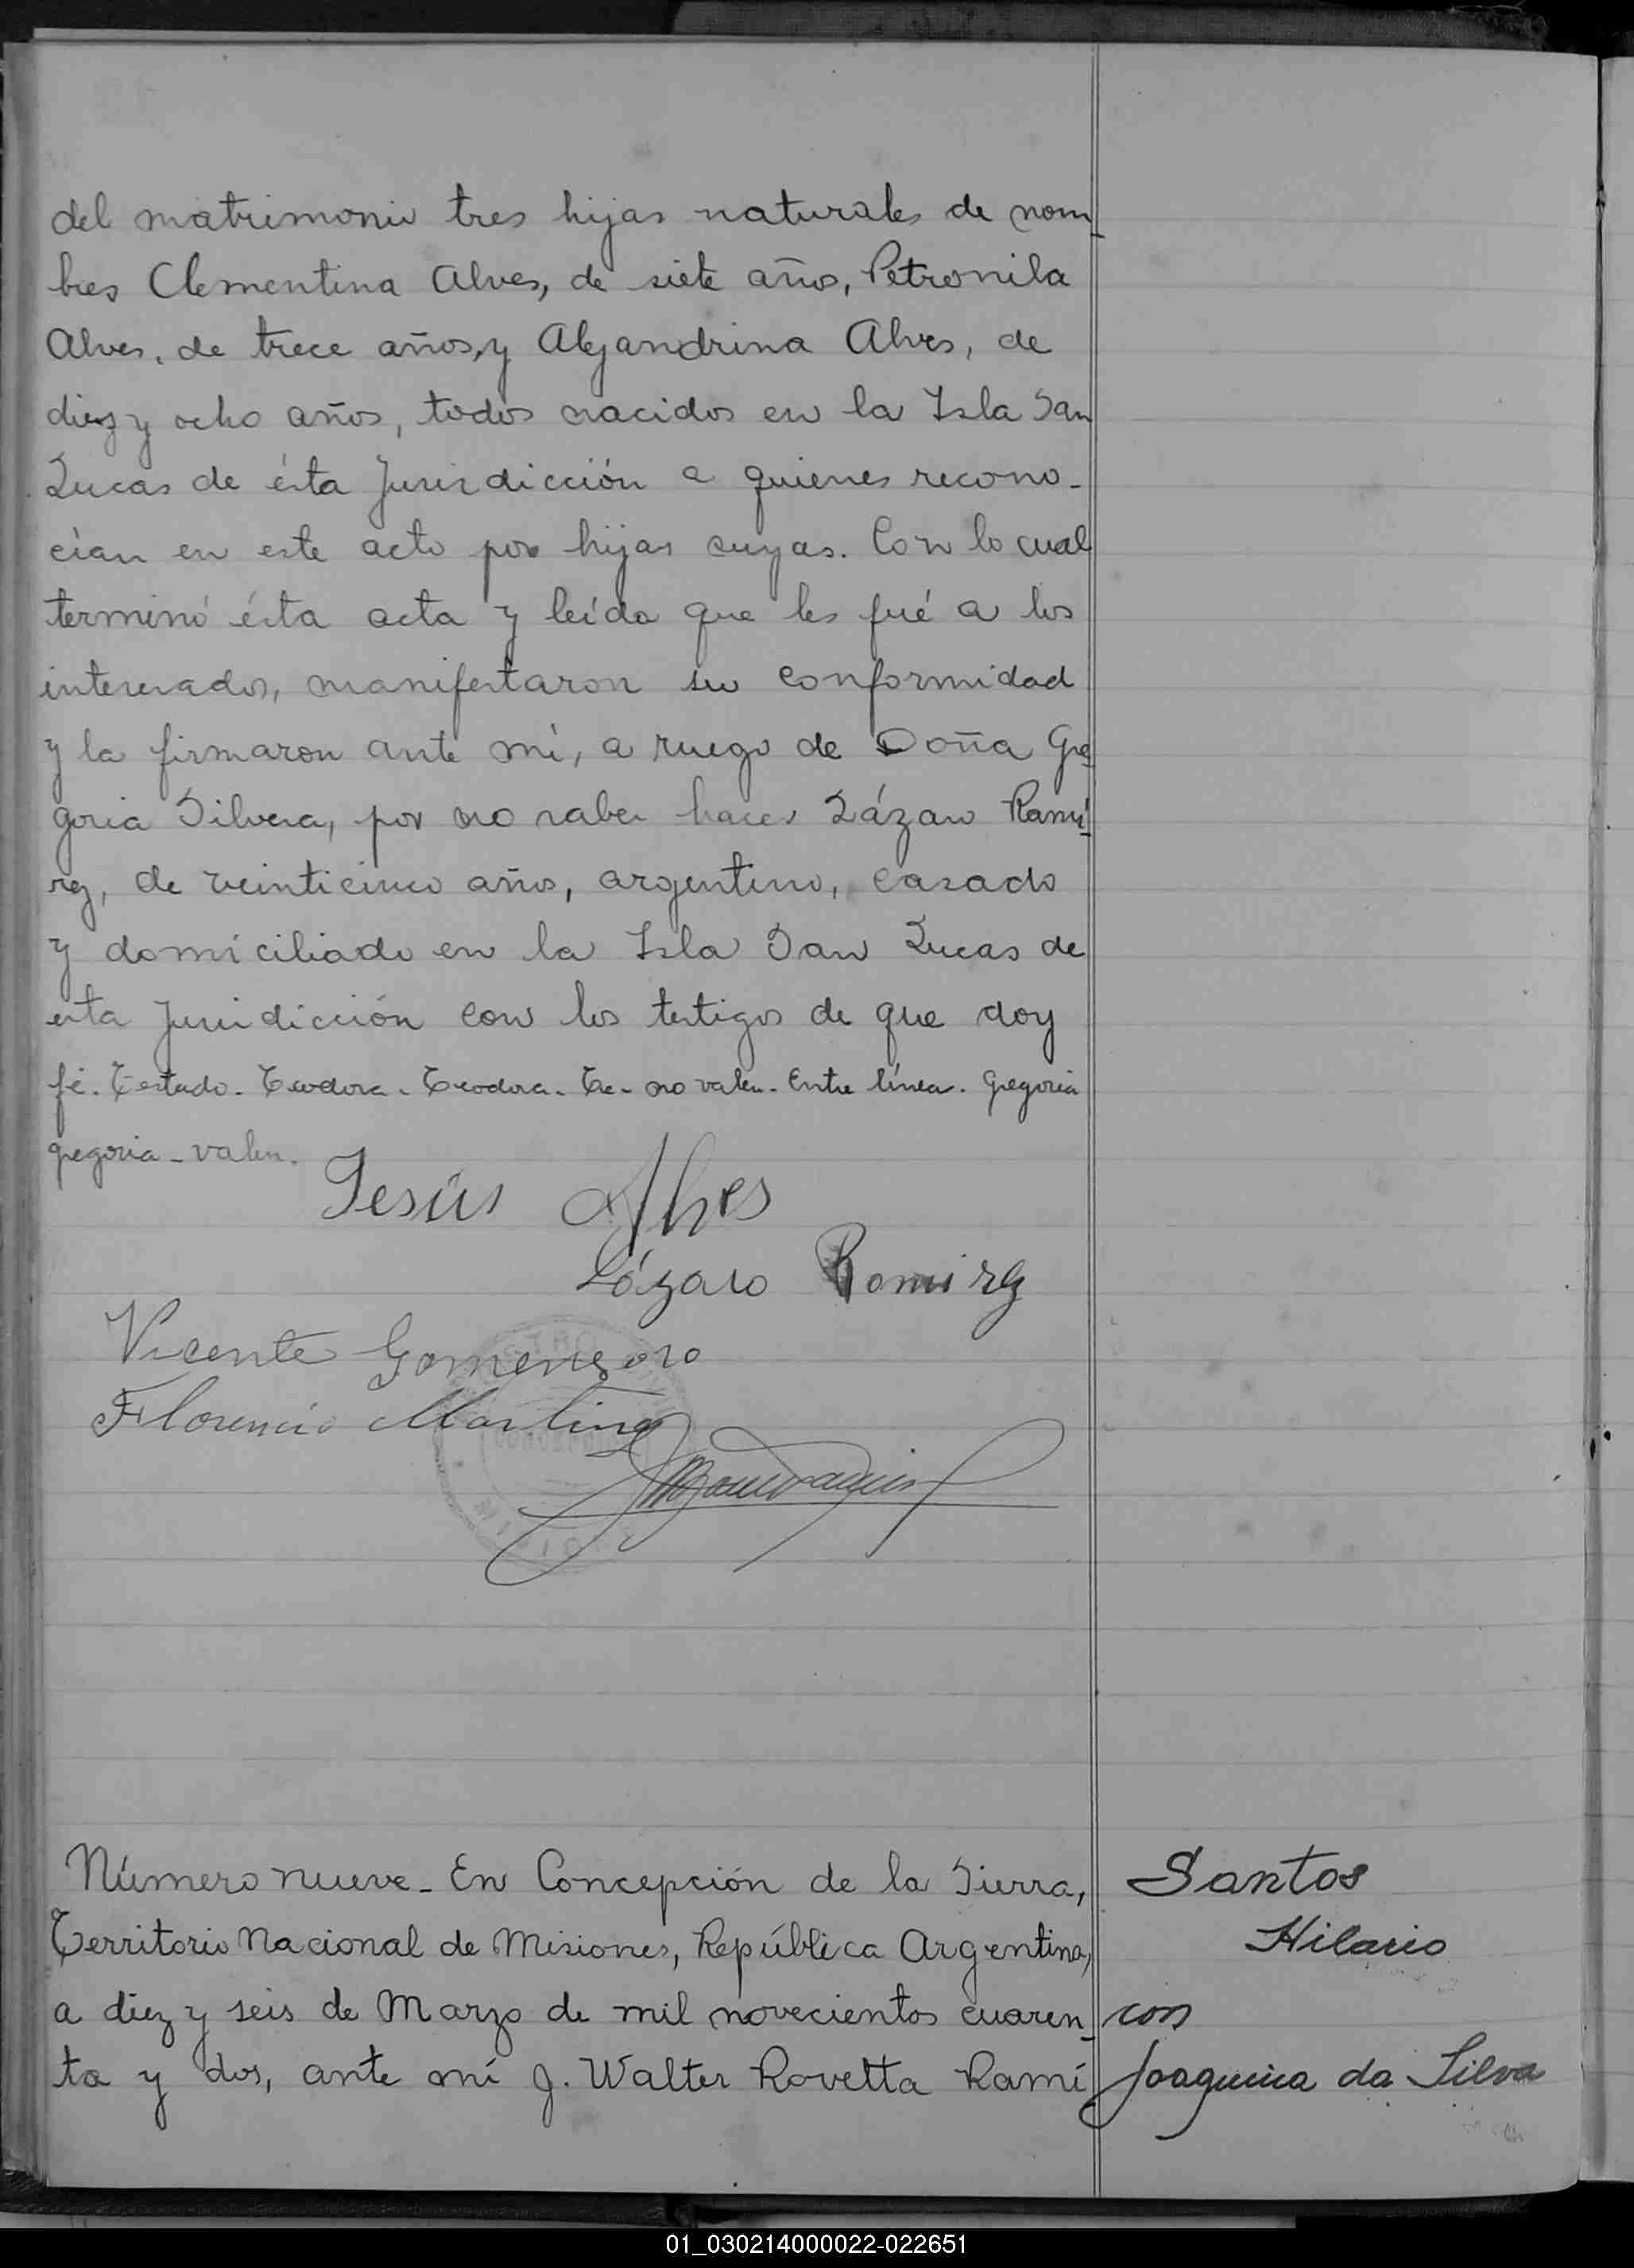 del matrimonio tres hijas naturales de nom
bres Clementina Alves, de siete años, Petronila
Alves, de trece años, y Alejandrina Alves, de
diez y ocho años, todos nacidos en la Isla San
Lucas de ésta Jurisdicción a quienes recono-
cían en este acto por hijas suyas. Con lo cual
terminó ésta acta y leída que les fué a los
interesados, manifestaron su conformidad
y la firmaron ante mí, a ruego de Doña Gre
goria Silvera, por no saber hacer Lázaro Ramí
rez, de veinticinco años, argentino, casado
y domiciliado en la Isla San Lucas de
esta Jurisdicción con los testigos de que doy
fé. Testado - Teodora - Teodora - Te - no valen. Entre línea. Gregoria
gregoria - valen.
Jesús Alves
Lázaro Ramirez
Vicente Gomensoro
Florencio Martinez
Número nueve - En Concepción de la Sierra,
Territorio Nacional de Misiones, República Argentina,
a diez y seis de Marzo de mil novecientos cuaren
ta y dos, ante mí J. Walter Rovetta Ramí
Santos
Hilario
con
Joaquina da Silva
01_030214000022-022651